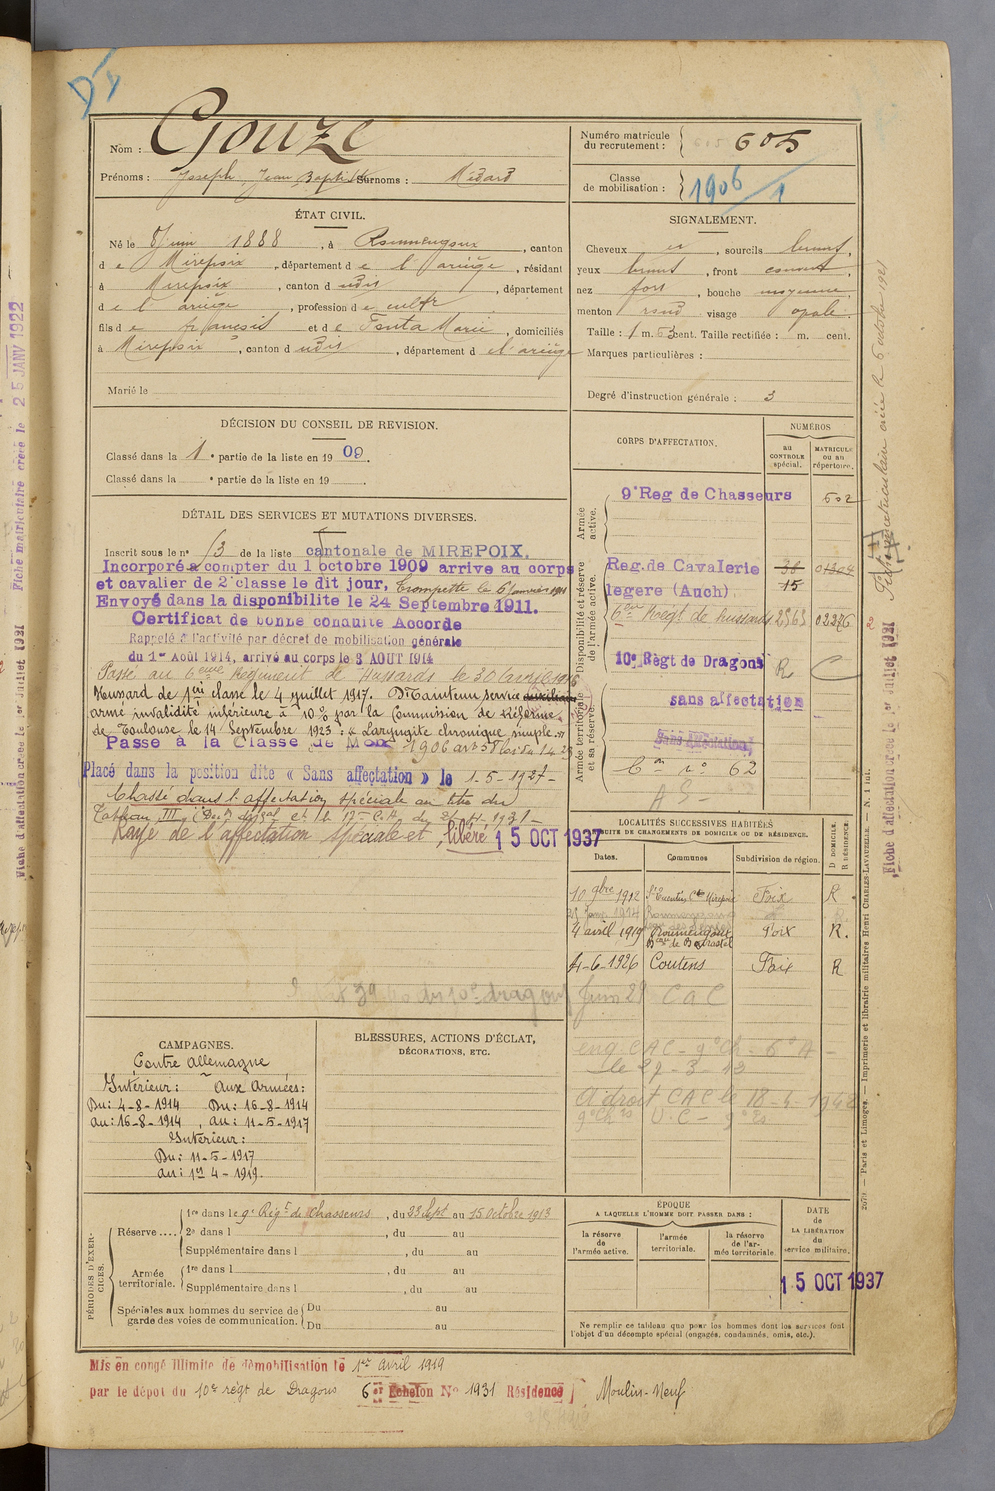 Nom : Gouze
Prénoms : Joseph, Jean Baptiste Surnoms : Médard
Numéro matricule du recrutement : 605
Classe de mobilisation : 1906 / 1
ÉTAT CIVIL.
Né le 8 Juin 1888, à Roumengoux, canton
de Mirepoix, département de l'ariège, résidant
à Mirepoix, canton d udis, département
de l'ariège, profession de cultr
fils de et de Marie, domiciliés
à Mirepoix, canton d udis, département de l'ariège
Marié le
SIGNALEMENT.
Cheveux sourcils bruns,
yeux bruns, front
nez fort, bouche moyenne,
menton rond visage opale.
Taille : 1 m. 63 cent. Taille rectifiée : m. cent.
Marques particulières :
Degré d'instruction générale : 3
DÉCISION DU CONSEIL DE REVISION.
Classé dans la 1e partie de la liste en 1909.
Classé dans la e partie de la liste en 19 .
DÉTAIL DES SERVICES ET MUTATIONS DIVERSES.
Inscrit sous le no 13 de la liste cantonale de MIREPOIX.
Incorporé a compter du 1 octobre 1909 arrive au corps
et cavalier de 2e classe le dit jour, trompette le 6 janvier 1911
Envoyé dans la disponibilite le 24 Septembre 1911.
Certificat de bonne conduite Accorde
Rappelé à l'activité par décret de mobilisation générale
du 1er Août 1914, arrivé au corps le 3 AOUT 1914
Passé au 6eme Régiment de Hussards le 30 avril 1916
Hussard de 1ere classe le 4 juillet 1917. Maintenu service auxiliaire
armé invalidité inférieure à 10% par la Commission de Réforme
de Toulouse le 14 Septembre 1923 : « Laryngite chronique simple. »
Passe à la Classe de Mob 1906
Placé dans la position dite « Sans affectation » le 1-5-1927-
Classé dans l'affectation spéciale au titre du
Tableau III
Rayé de l'affectation spéciale et libéré 15 OCT 1937
CORPS D'AFFECTATION.
NUMÉROS
AU CONTROLE spécial.
MATRICULE ou au répertoire.
Armée active.
9e Reg de Chasseurs 502
Disponibilité et réserve de l'armée active.
Reg. de Cavalerie 38 01304
legere (Auch) 15
6eme Regt de hussards 2563 02276
10e Règt de Dragons R C
Armée territoriale et sa réserve
sans affectation
Sans Affectation
Con no 62
LOCALITÉS SUCCESSIVES HABITÉES
PAR SUITE DE CHANGEMENTS DE DOMICILE OU DE RÉSIDENCE.
Dates. Communes Subdivision de région. D DOMICILE. R RÉSIDENCE.
10 9bre 1912 St Quentin Con Mirepoix Foix R.
1914 Roumengoux
4 avril 1919 Roumengoux Foix R.
4-6-1926 Coutens Foix R
Juin 29 CAC
eng. CAC - 9e Ch - 6e A -
A droit CAC le 18-4-1942
CAMPAGNES.
Contre Allemagne
Intérieur : Aux Armées :
Du : 4-8-1914 Du : 16-8-1914
au : 16-8-1914, au : 11-5-1917
Intérieur :
Du : 11-5-1917
au : 1er 4-1919.
BLESSURES, ACTIONS D'ÉCLAT,
DÉCORATIONS, ETC.
PÉRIODES D'EXERCICES.
Réserve....
1re dans le 9e Régt de chasseurs, du 23 Sept au 15 Octobre 1913
2e dans l , du au
Supplémentaire dans l , du au
Armée territoriale.
1re dans l , du au
Supplémentaire dans l , du au
Spéciales aux hommes du service de garde des voies de communication.
Du au
Du au
ÉPOQUE
A LAQUELLE L'HOMME DOIT PASSER DANS :
la réserve de l'armée active.
l'armée territoriale.
la réserve de l'armée territoriale.
DATE de LA LIBÉRATION du service militaire.
15 OCT 1937
Ne remplir ce tableau que pour les hommes dont les services font
l'objet d'un décompte spécial (engagés, condamnés, omis, etc.).
Mis en congé illimité de démobilisation le 1er avril 1919
par le dépot du 10e régt de Dragons 6er Echelon No 1931 Résidence Moulin-Neuf
Fiche matriculaire créée le 25 JANV 1922
Fiche d'affectation créée le 1er Juillet 1921
Fiche matriculaire créée le 5 octobre 1921
Fiche d'affectation créée le 1er Juillet 1921
Paris et Limoges. — Imprimerie et librairie militaires Henri CHARLES-LAVAUZELLE.